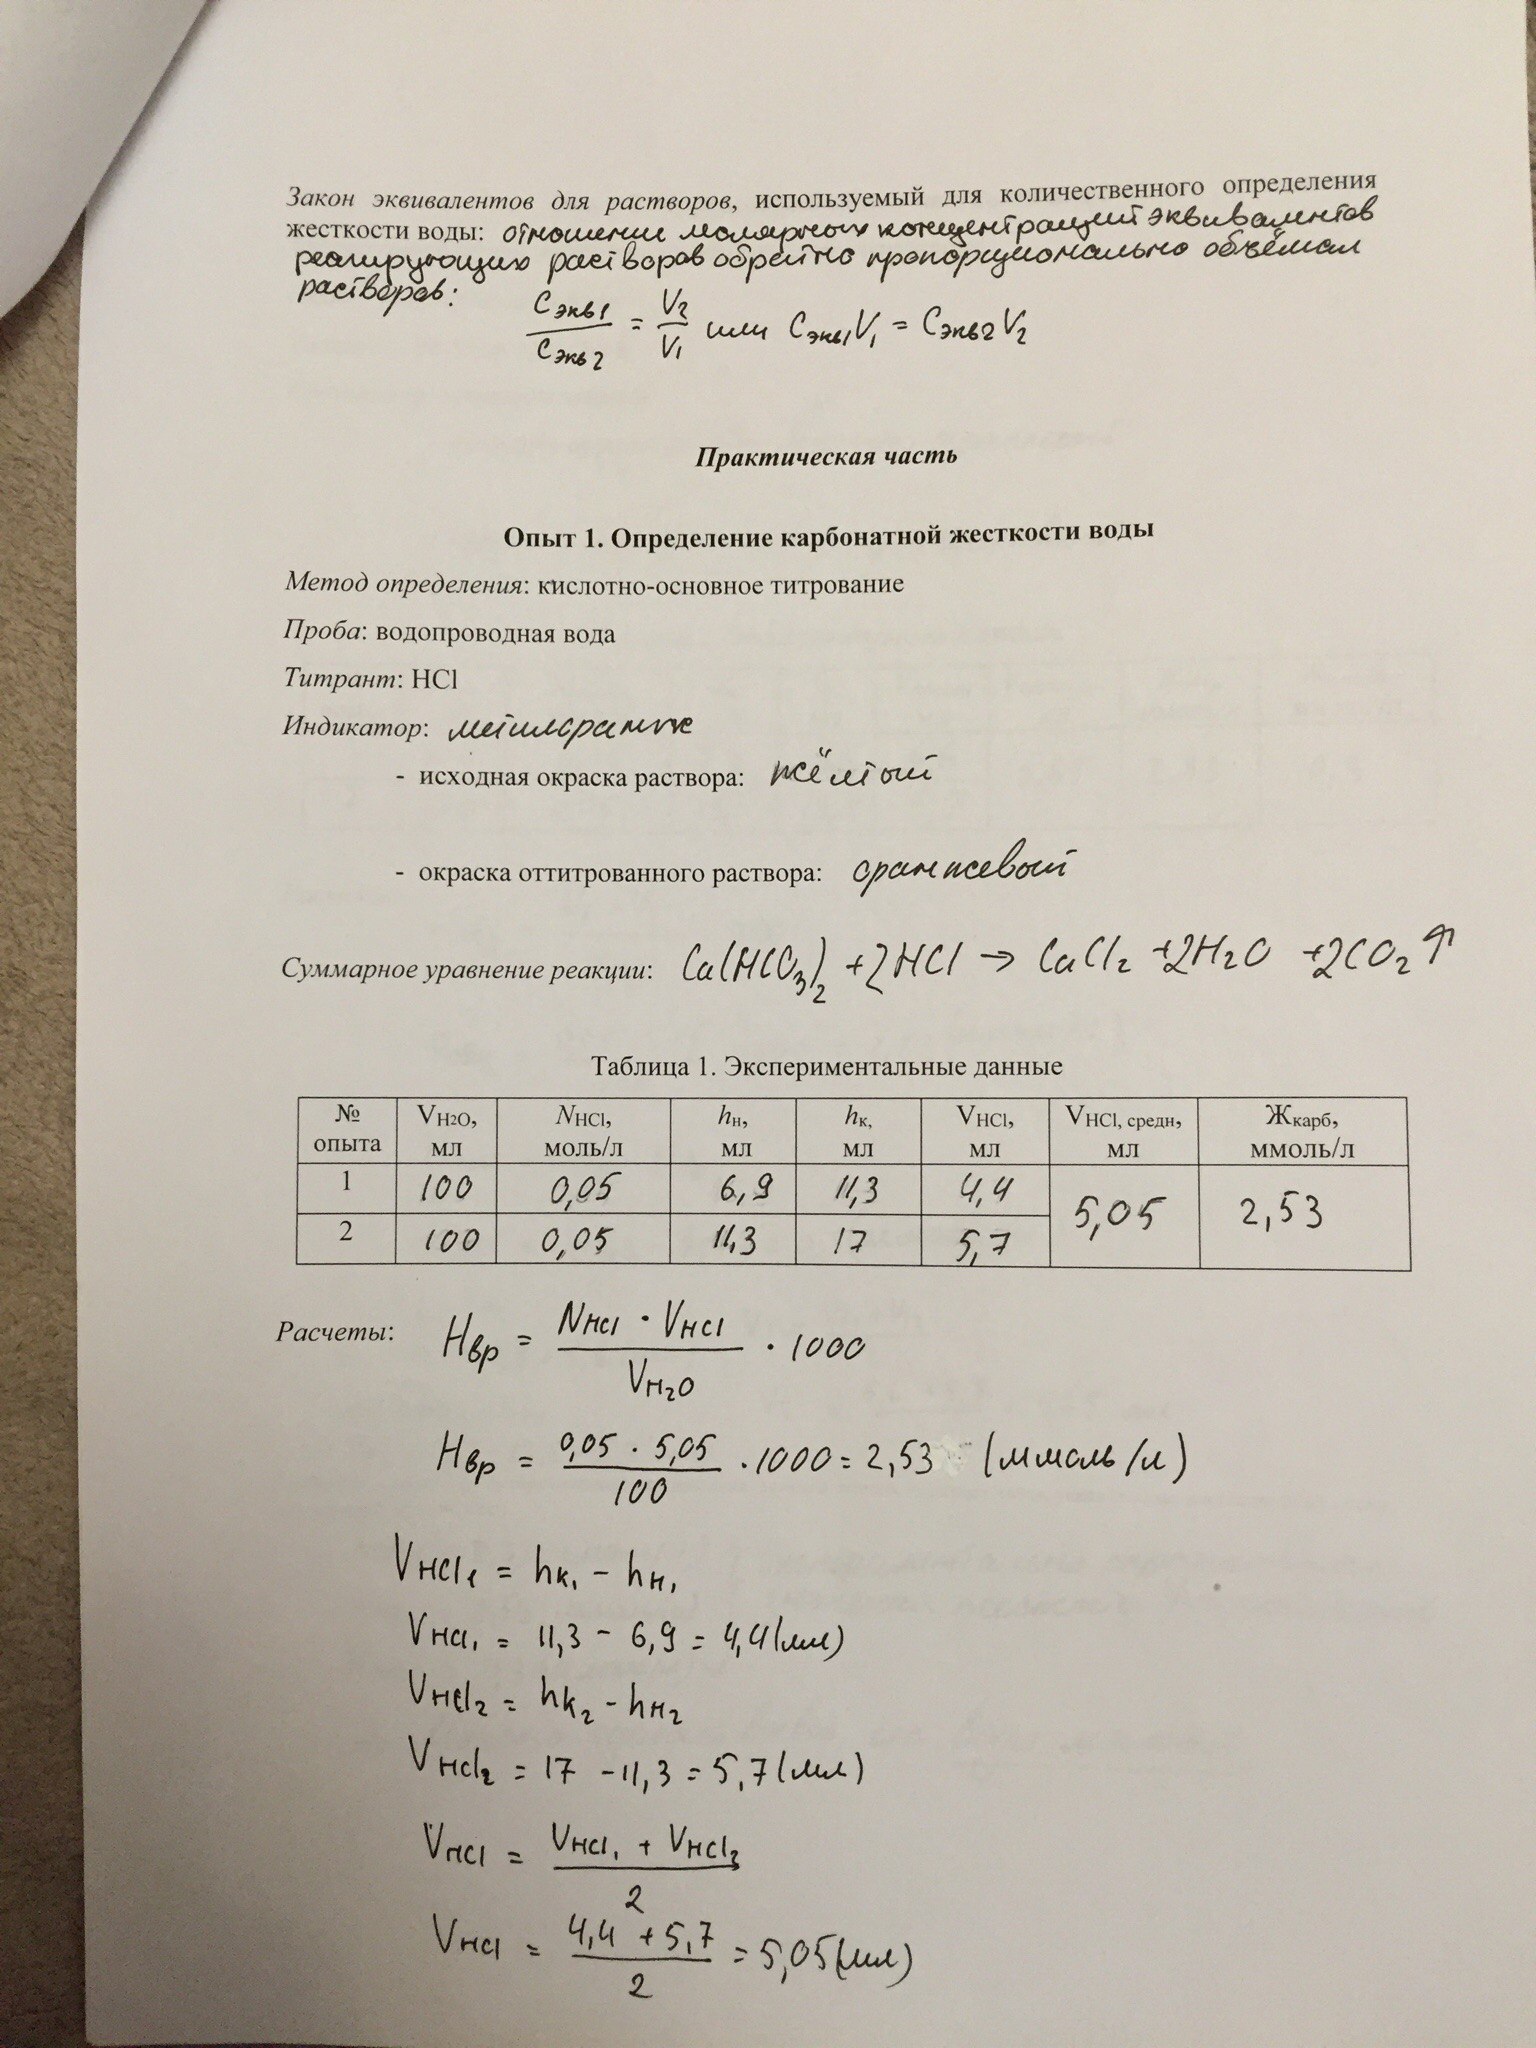 Закон эквивалентов для растворов, используемый для количественного определения
жесткости воды: отношение молярных концентраций эквивалентов
реагирующих растворов обратно пропорционально объёмам
растворов:
Cэкв1/Cэкв2 = V2/V1 или Cэкв1V1 = Cэкв2V2
Практическая часть
Опыт 1. Определение карбонатной жесткости воды
Метод определения: кислотно-основное титрование
Проба: водопроводная вода
Титрант: HCl
Индикатор: метилоранж
- исходная окраска раствора: жёлтый
- окраска оттитрованного раствора: оранжевый
Суммарное уравнение реакции: Ca(HCO3)2 + 2HCl → CaCl2 + 2H2O + 2CO2↑
Таблица 1. Экспериментальные данные
№ опыта VH2O, мл NHCl, моль/л hн, мл hк, мл VHCl, мл VHCl, средн, мл Жкарб, ммоль/л
1 100 0,05 6,9 11,3 4,4 5,05 2,53
2 100 0,05 11,3 17 5,7
Расчеты: Hвр = NHCl · VHCl / VH2O · 1000
Hвр = 0,05 · 5,05 / 100 · 1000 = 2,53 (ммоль/л)
VHCl1 = hк1 - hн1
VHCl1 = 11,3 - 6,9 = 4,4 (мл)
VHCl2 = hк2 - hн2
VHCl2 = 17 - 11,3 = 5,7 (мл)
VHCl = VHCl1 + VHCl2 / 2
VHCl = 4,4 + 5,7 / 2 = 5,05 (мл)